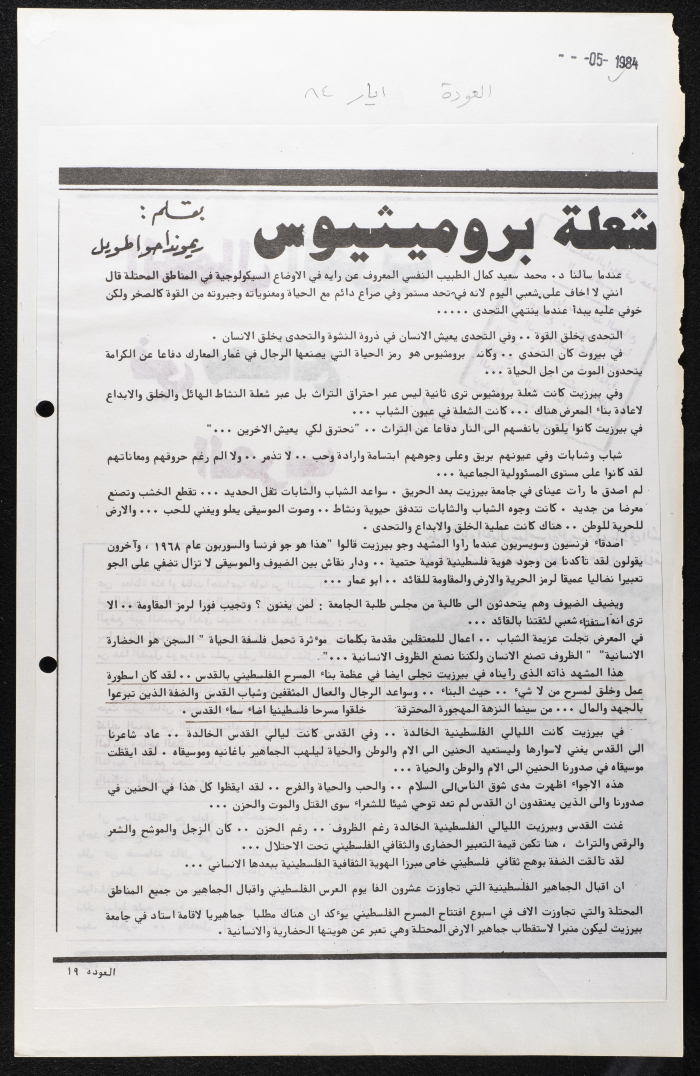 - - -05- 1984
العودة ايار ٨٤
شعلة بروميثيوس
بقلم :
ريموندا حوا طويل
عندما سالنا د. محمد سعيد كمال الطبيب النفسي المعروف عن رايه في الاوضاع السيكولوجية في المناطق المحتلة قال
انني لا اخاف على شعبي اليوم لانه في تحد مستمر وفي صراع دائم مع الحياة ومعنوياته وجبروته من القوة كالصخر ولكن
خوفي عليه يبدأ عندما ينتهي التحدي .....
التحدي يخلق القوة .. وفي التحدي يعيش الانسان في ذروة النشوة والتحدي يخلق الانسان .
في بيروت كان التحدي .. وكانه بروميثوس هو رمز الحياة التي يصنعها الرجال في غمار المعارك دفاعا عن الكرامة
يتحدون الموت من اجل الحياة ...
وفي بيرزيت كانت شعلة بروميثوس ترى ثانية ليس عبر احتراق التراث بل عبر شعلة النشاط الهائل والخلق والابداع
لاعادة بناء المعرض هناك ... كانت الشعلة في عيون الشباب ...
في بيرزيت كانوا يلقون بانفسهم الى النار دفاعا عن التراث .. "نحترق لكي يعيش الاخرين ..."
شباب وشابات وفي عيونهم بريق وعلى وجوههم ابتسامة وارادة وحب .. لا تذمر .. ولا الم رغم حروقهم ومعاناتهم
لقد كانوا على مستوى المسئوولية الجماعية ...
لم اصدق ما رات عيناي في جامعة بيرزيت بعد الحريق . سواعد الشباب والشابات تقل الحديد ... تقطع الخشب وتصنع
معرضا من جديد . كانت وجوه الشباب والشابات تتدفق حيوية ونشاط .. وصوت الموسيقى يعلو ويغني للحب ... والارض
للحرية للوطن .. هناك كانت عملية الخلق والابداع والتحدي .
اصدقاء فرنسيون وسويسريون عندما راوا المشهد وجو بيرزيت قالوا "هذا هو جو فرنسا والسوربون عام ١٩٦٨ ، وآخرون
يقولون لقد تاكدنا من وجود هوية فلسطينية قومية حتمية .. ودار نقاش بين الضيوف والموسيقى لا تزال تضفي على الجو
تعبيرا نضاليا عميقا لرمز الحرية والارض والمقاومة للقائد .. ابو عمار ...
ويضيف الضيوف وهم يتحدثون الى طالبة من مجلس طلبة الجامعة : لمن يغنون ؟ وتجيب فورا لرمز المقاومة .. الا
ترى انه استفتاء شعبي لثقتنا بالقائد ...
في المعرض تجلت عزيمة الشباب .. اعمال للمعتقلين مقدمة بكلمات موءثرة تحمل فلسفة الحياة " السجن هو الحضارة
الانسانية" " الظروف تصنع الانسان ولكننا نصنع الظروف الانسانية ..." .
هذا المشهد ذاته الذي رايناه في بيرزيت تجلى ايضا في عظمة بناء المسرح الفلسطيني بالقدس .. لقد كان اسطورة
عمل وخلق لمسرح من لا شيء .. حيث البناء .. وسواعد الرجال والعمال المثقفين وشباب القدس والضفة الذين تبرعوا
بالجهد والمال ... من سينما النزهة المهجورة المحترقة خلقوا مسرحا فلسطينيا اضاء سماء القدس .
في بيرزيت كانت الليالي الفلسطينية الخالدة .. وفي القدس كانت ليالي القدس الخالدة .. عاد شاعرنا
الى القدس يغني لاسوارها وليستعيد الحنين الى الام والوطن والحياة ليلهب الجماهير باغانيه وموسيقاه . لقد ايقظت
موسيقاه في صدورنا الحنين الى الام والوطن والحياة ...
هذه الاجواء اظهرت مدى شوق الناس الى السلام .. والحب والحياة والفرح .. لقد ايقظوا كل هذا في الحنين في
صدورنا والى الذين يعتقدون ان القدس لم تعد توحي شيئا للشعراء سوى القتل والموت والحزن ...
غنت القدس وبيرزيت الليالي الفلسطينية الخالدة رغم الظروف .. رغم الحزن .. كان الزجل والموشح والشعر
والرقص والتراث ، هنا تكمن قيمة التعبير الحضاري والثقافي الفلسطيني تحت الاحتلال ...
لقد تالقت الضفة بوهج ثقافي فلسطيني خاص مبرزا الهوية الثقافية الفلسطينية ببعدها الانساني ...
ان اقبال الجماهير الفلسطينية التي تجاوزت عشرون الفا يوم العرس الفلسطيني واقبال الجماهير من جميع المناطق
المحتلة والتي تجاوزت الاف في اسبوع افتتاح المسرح الفلسطيني يوءكد ان هناك مطلبا جماهيريا لاقامة استاد في جامعة
بيرزيت ليكون منبرا لاستقطاب جماهير الارض المحتلة وهي تعبر عن هويتها الحضارية والانسانية .
العودة ١٩